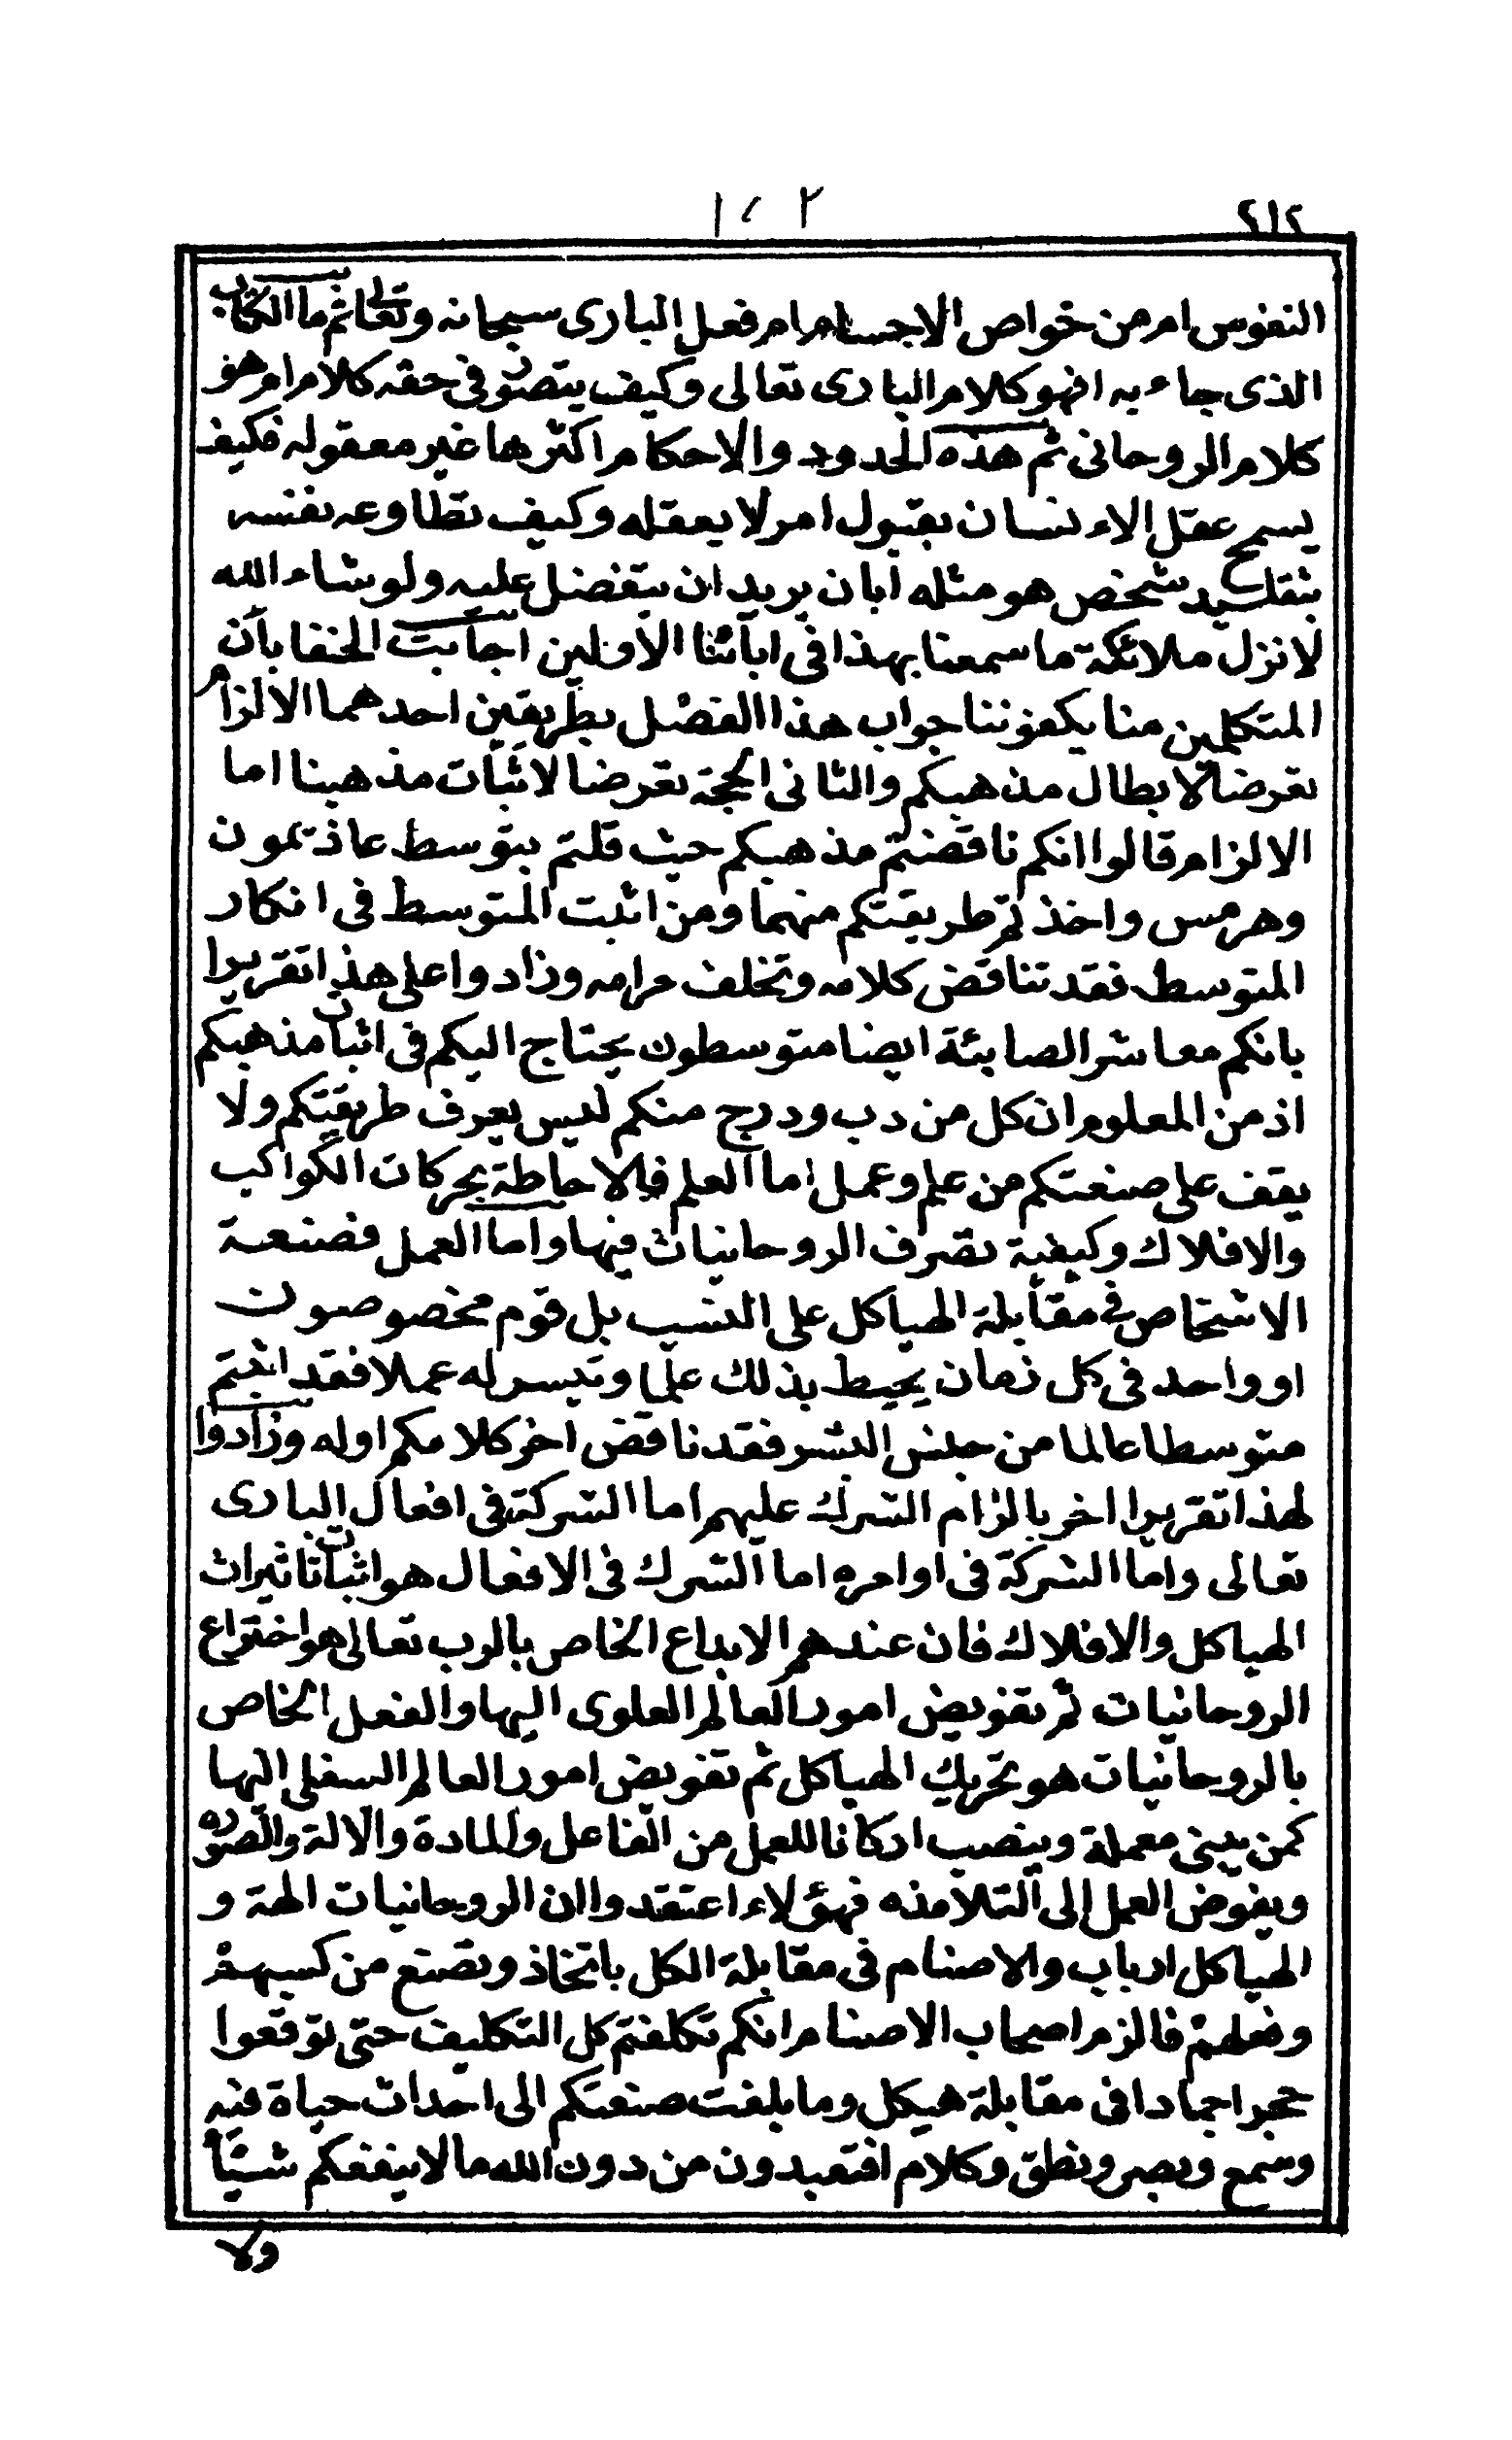 ١٠٢
٢١٢
النفوس ام من خواص الاجسام ام فعل البارى سبحانه وتعالى ثم ما الكتاب
الذى جاء به افهو كلام البارى تعالى وكيف يتصور فى حقه كلام ام هو
كلام الروحانى ثم هذه الحدود والاحكام اكثرها غير معقوله فكيف
يسمح عقل الاءنسان بقبول امر لا يعقله وكيف تطاوعه نفسه
بتقليد شخص هو مثله أبان يريد ان يتفضل عليه ولو شاء الله
لانزل ملائكة ما سمعنا بهذا فى ابآئنا الاولين اجابت الحنفا بأن
المتكلمين منا يكفوننا جواب هذا الفصل بطريقين احدهما الالزام
تعرضا لابطال مذهبكم والثانى الحجة تعرضا لاثبات مذهبنا اما
الالزام قالوا انكم ناقضتم مذهبكم حيث قلتم بتوسط عاذيمون
وهرمس واخذتم طريقتكم منهما ومن اثبت المتوسط فى انكار
المتوسط فقد تناقض كلامه وتخلف مرامه وزادوا على هذا تقريرا
بانكم معاشر الصابئة ايضا متوسطون يحتاج اليكم فى اثبات مذهبكم
اذ من المعلوم ان كل من دب ودرج منكم ليس يعرف طريقتكم ولا
يقف على صنعتكم من علم وعمل اما العلم فالاحاطة بحركات الكواكب
والافلاك وكيفية تصرف الروحانيات فيها واما العمل فصنعة
الاشخاص فى مقابلة الهياكل على النسب بل قوم مخصوصون
او واحد فى كل زمان يحيط بذلك علما وتيسر له عملا فقد اثبتم
متوسطا عالما من جنس البشر فقد ناقض اخر كلامكم اوله وزادوا
لهذا تقريرا اخر بالزام الشرك عليهم اما الشركة فى افعال البارى
تعالى واما الشركة فى اوامره اما الشرك فى الافعال هو اثبات تاثيرات
الهياكل والافلاك فان عندهم الابداع الخاص بالرب تعالى هو اختراع
الروحانيات ثم تفويض امور العالم العلوى اليها والفعل الخاص
بالروحانيات هو تحريك الهياكل ثم تفويض امور العالم السفلى اليها
كمن يبنى معملة وينصب اركانا للعمل من الفاعل والمادة والالة والصوره
ويفوض العمل الى التلامذه فهؤلاء اعتقدوا ان الروحانيات الهة و
الهياكل ارباب والاصنام فى مقابلة الكل باتخاذ وتصنع من كسبهم
وفعلهم فالزم اصحاب الاصنام انكم تكلفتم كل التكليف حتى توقعوا
حجرا جمادا فى مقابلة هيكل وما بلغت صنعتكم الى احداث حياة فيه
وسمع وبصر ونطق وكلام افتعبدون من دون الله ما لا ينفعكم شيئا
ولا